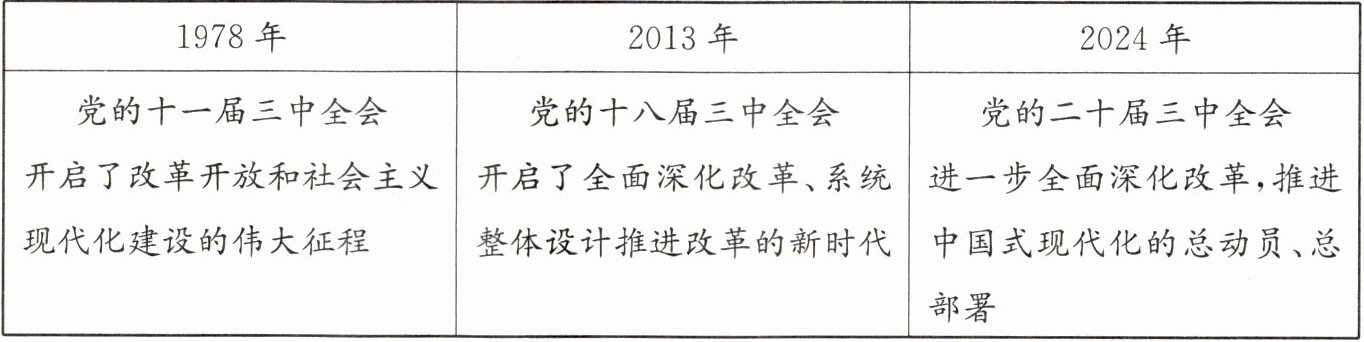 1978 年
2013 年
2024 年
党的十一届三中全会
开启了改革开放和社会主义
现代化建设的伟大征程
党的十八届三中全会
开启了全面深化改革、系统
整体设计推进改革的新时代
党的二十届三中全会
进一步全面深化改革,推进
中国式现代化的总动员、总
部署